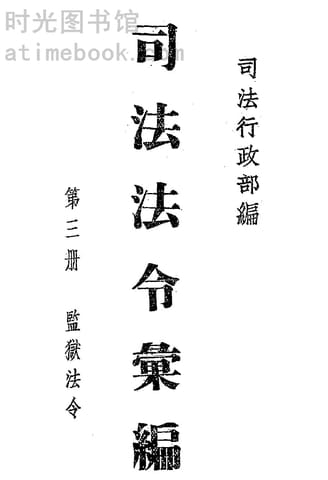 时光图书馆
atimebook.com
司法行政部編
司法法令彙編
第三册 監獄法令